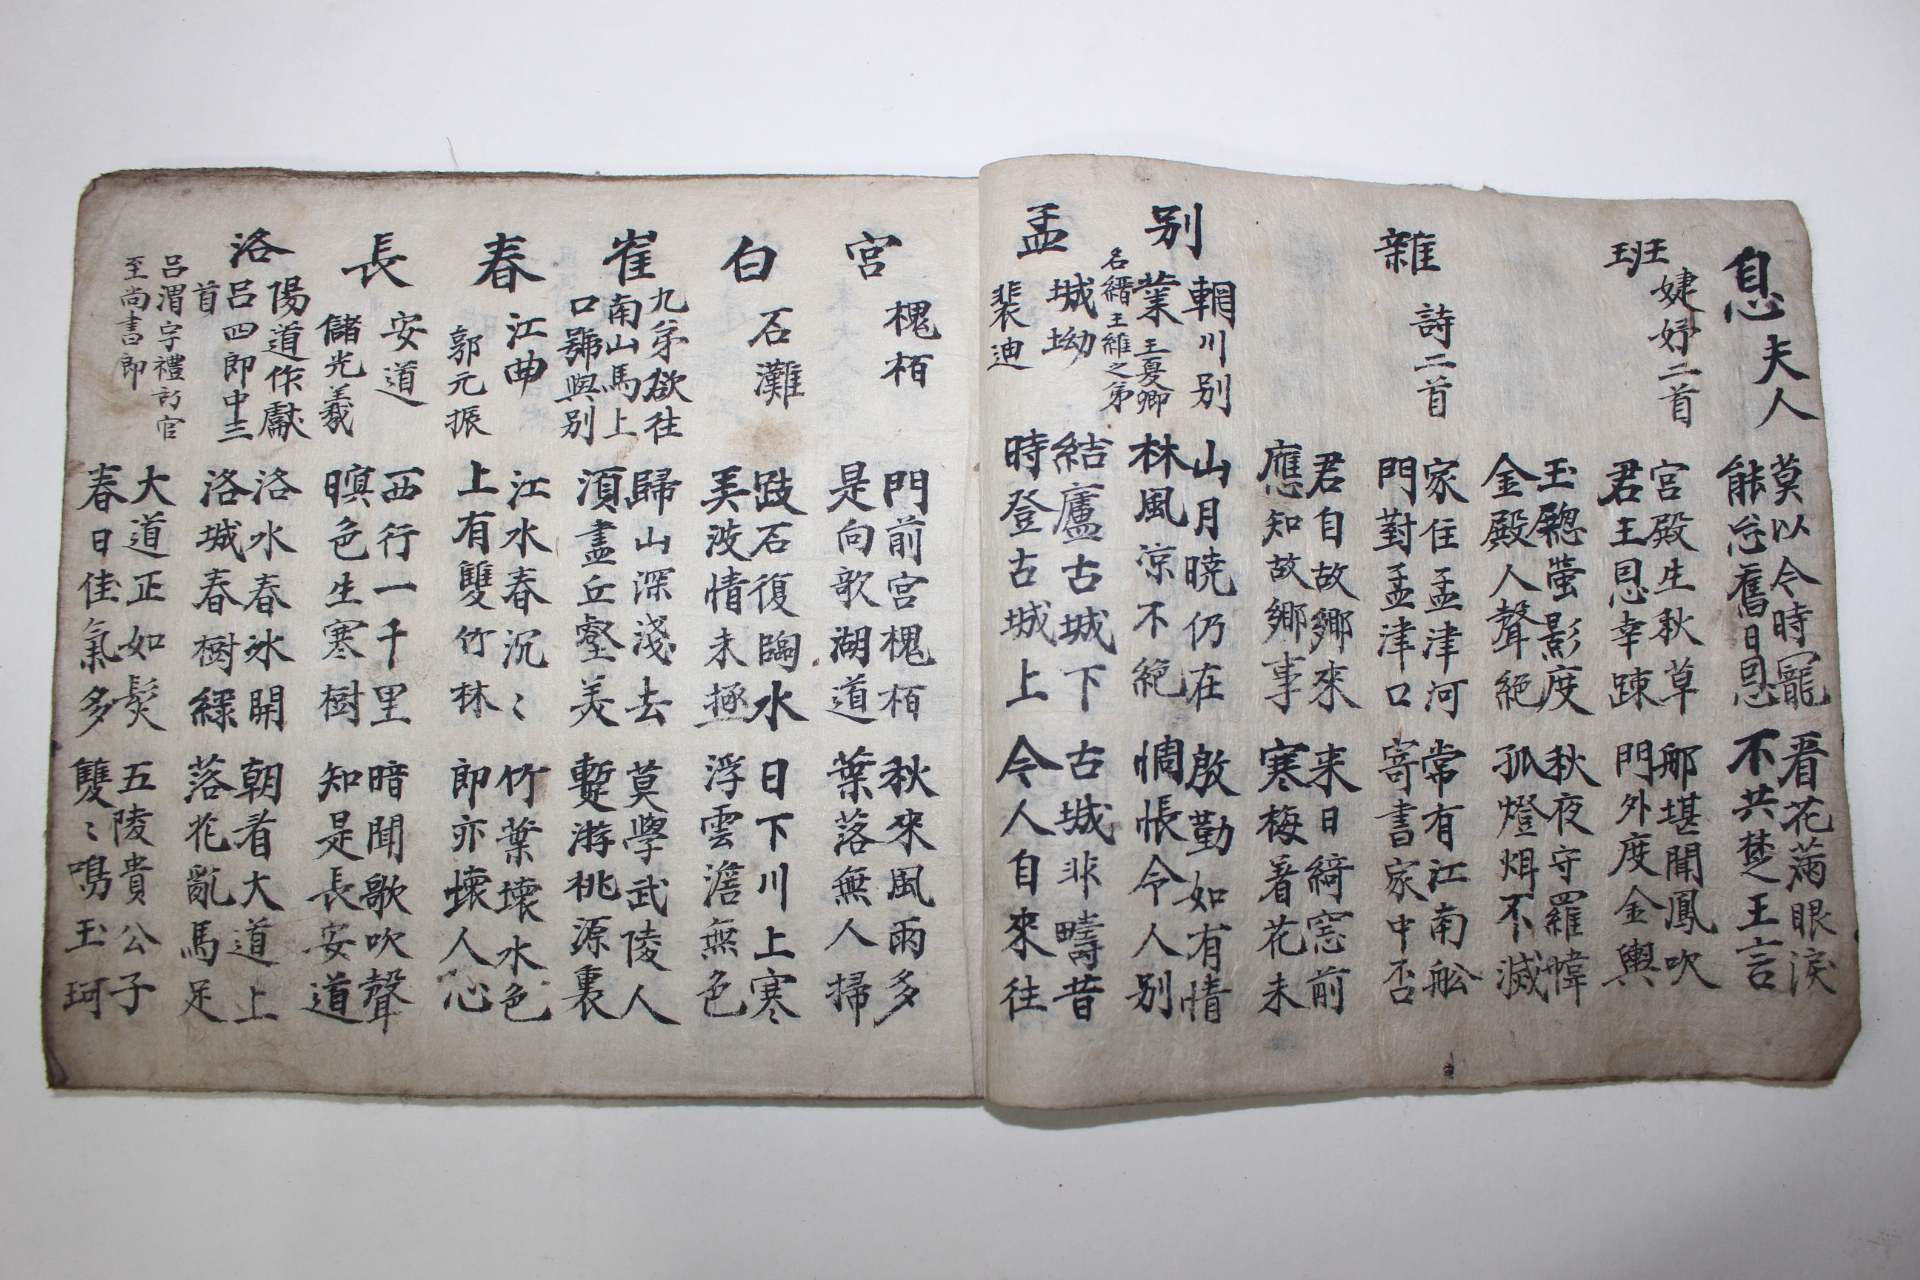 息夫人
莫以今時寵
能忘舊日恩
看花滿眼淚
不共楚王言
班婕妤二首
宮殿生秋草
君王恩幸踈
那堪聞鳳吹
門外度金輿
玉䆫螢影度
金殿人聲絶
秋夜守羅幃
孤燈烟不滅
雜詩二首
家住孟津河
門對孟津口
常有江南舩
寄書家中否
君自故鄉來
應知故鄉事
来日綺窓前
寒梅着花未
別輞川別
業王夏卿
名縉王維之弟
山月暁仍在
林風凉不絶
慇勤如有情
惆悵令人別
孟城坳
裴迪
結廬古城下
時登古城上
古城非疇昔
今人自來往
宮槐栢
門前宮槐栢
是向歌湖道
秋來風雨多
葉落無人掃
白石灘
跂石復臨水
美波情未極
日下川上寒
浮雲澹無色
崔九弟欲往
南山馬上
口號與別
歸山深淺去
須盡丘壑美
莫學武陵人
蹔游桃源裏
春江曲
郭元振
江水春沉〻
上有雙竹林
竹葉壞水色
郎亦壞人心
長安道
儲光羲
西行一千里
暝色生寒樹
暗聞歌吹聲
知是長安道
洛陽道作獻
呂四郎中三
首
呂渭字禮部官
至尚書郎
洛水春冰開
洛城春樹綠
朝看大道上
落花亂馬足
大道正如髮
春日佳氣多
五陵貴公子
雙〻鳴玉珂